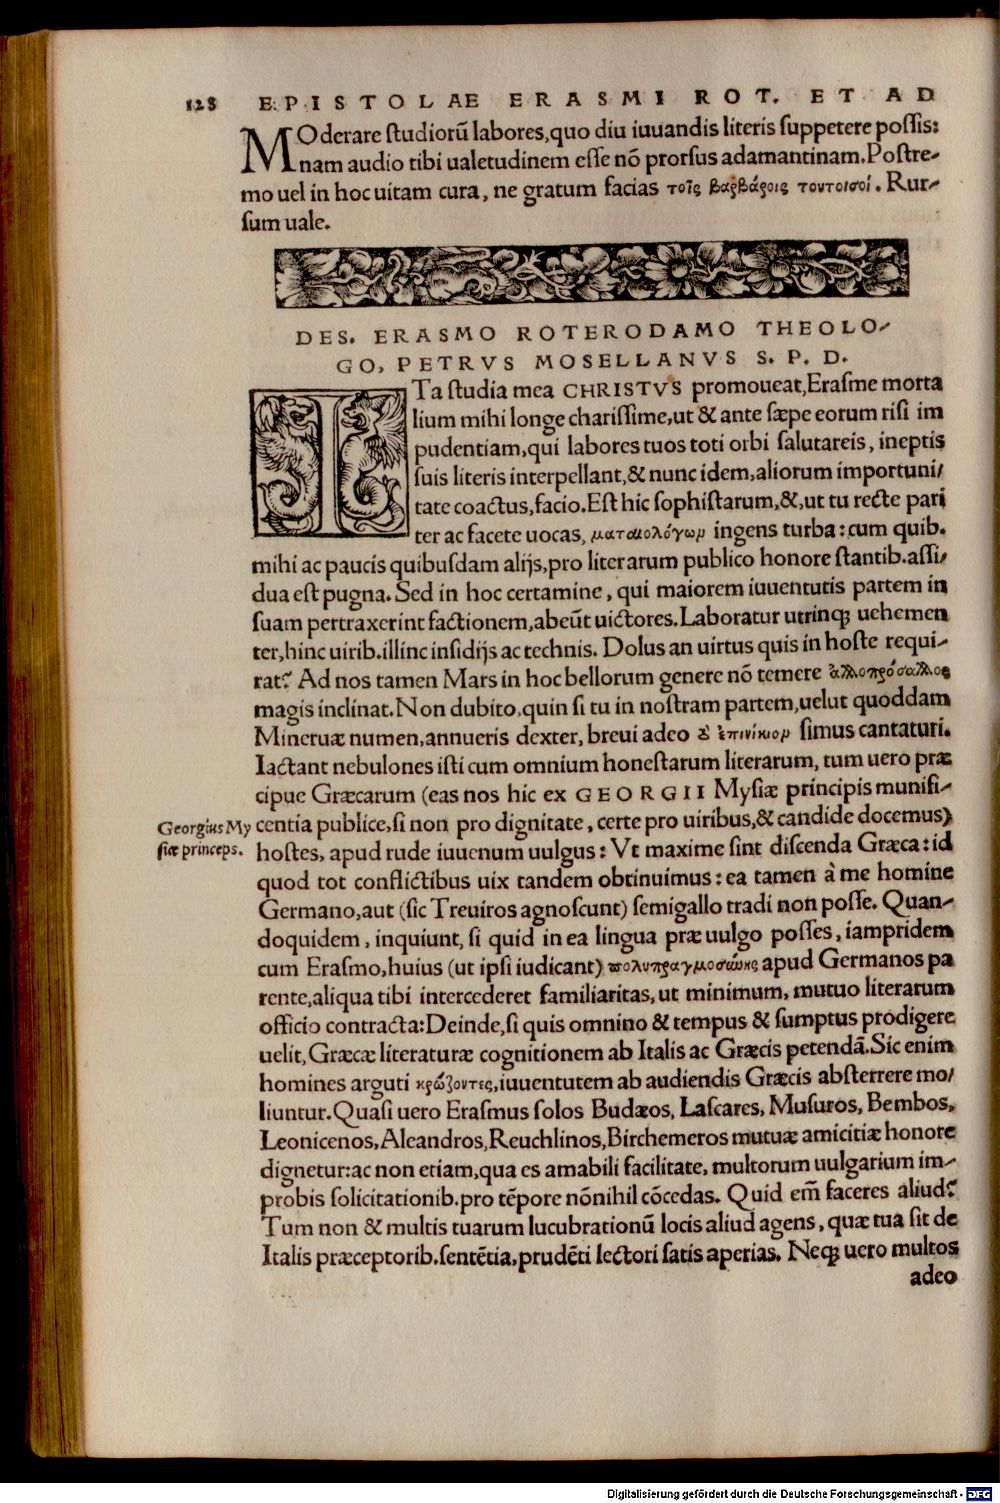 128 EPISTOLAE ERASMI ROT. ET AD
MOderare ſtudiorũ labores,quo diu iuuandis literis ſuppetere poſsis:
nam audio tibi ualetudinem eſſe nõ prorſus adamantinam.Poſtre-
mo uel in hoc uitam cura, ne gratum facias τοῖς βαρβάροις τουτοισοί. Rur-
ſum uale.
DES. ERASMO ROTERODAMO THEOLO-
GO, PETRVS MOSELLANVS S. P. D.
ITa ſtudia mea CHRISTVS promoueat,Eraſme morta
lium mihi longe chariſsime,ut & ante ſæpe eorum riſi im
pudentiam,qui labores tuos toti orbi ſalutareis, ineptis
ſuis literis interpellant,& nunc idem,aliorum importuni/
tate coactus,facio.Eſt hic ſophiſtarum,&,ut tu recte pari
ter ac facete uocas, ματαιολόγωμ ingens turba: cum quib.
mihi ac paucis quibuſdam alijs,pro literarum publico honore ſtantib.aſsi/
dua eſt pugna. Sed in hoc certamine, qui maiorem iuuentutis partem in
ſuam pertraxerint factionem,abeũt uictores.Laboratur utrinq; uehemen
ter,hinc uirib.illinc inſidijs ac technis. Dolus an uirtus quis in hoſte requi-
rat? Ad nos tamen Mars in hoc bellorum genere nõ temere ἀλλοπρόσαλλος
magis inclinat.Non dubito,quin ſi tu in noſtram partem,uelut quoddam
Mineruæ numen,annueris dexter, breui adeo ἐπινίκιομ ſimus cantaturi.
Iactant nebulones iſti cum omnium honeſtarum literarum, tum uero præ
cipue Græcarum (eas nos hic ex GEORGII Myſiæ principis munifi-
Georgius My
ſiæ princeps.
centia publice,ſi non pro dignitate, certe pro uiribus,& candide docemus)
hoſtes, apud rude iuuenum uulgus: Vt maxime ſint diſcenda Græca: id
quod tot conflictibus uix tandem obtinuimus: ea tamen à me homine
Germano,aut (ſic Treuiros agnoſcunt) ſemigallo tradi non poſſe. Quan-
doquidem, inquiunt, ſi quid in ea lingua præ uulgo poſſes, iampridem
cum Eraſmo,huius (ut ipſi iudicant) πολυπραγμοσώης apud Germanos pa
rente,aliqua tibi intercederet familiaritas, ut minimum, mutuo literarum
officio contracta: Deinde,ſi quis omnino & tempus & ſumptus prodigere
uelit, Græcæ literaturæ cognitionem ab Italis ac Græcis petendã.Sic enim
homines arguti κρώζοντες,iuuentutem ab audiendis Græcis abſterrere mo/
liuntur.Quaſi uero Eraſmus ſolos Budæos, Laſcares, Muſuros, Bembos,
Leonicenos,Aleandros,Reuchlinos,Birchemeros mutuæ amicitiæ honore
dignetur:ac non etiam,qua es amabili facilitate, multorum uulgarium im-
probis ſolicitationib.pro tẽpore nõnihil cõcedas. Quid em̃ faceres aliud?
Tum non & multis tuarum lucubrationũ locis aliud agens, quæ tua ſit de
Italis præceptorib.ſentẽtia,prudẽti lectori ſatis aperias. Neq; uero multos
adeo
Digitalisierung gefördert durch die Deutsche Forschungsgemeinschaft - DFG